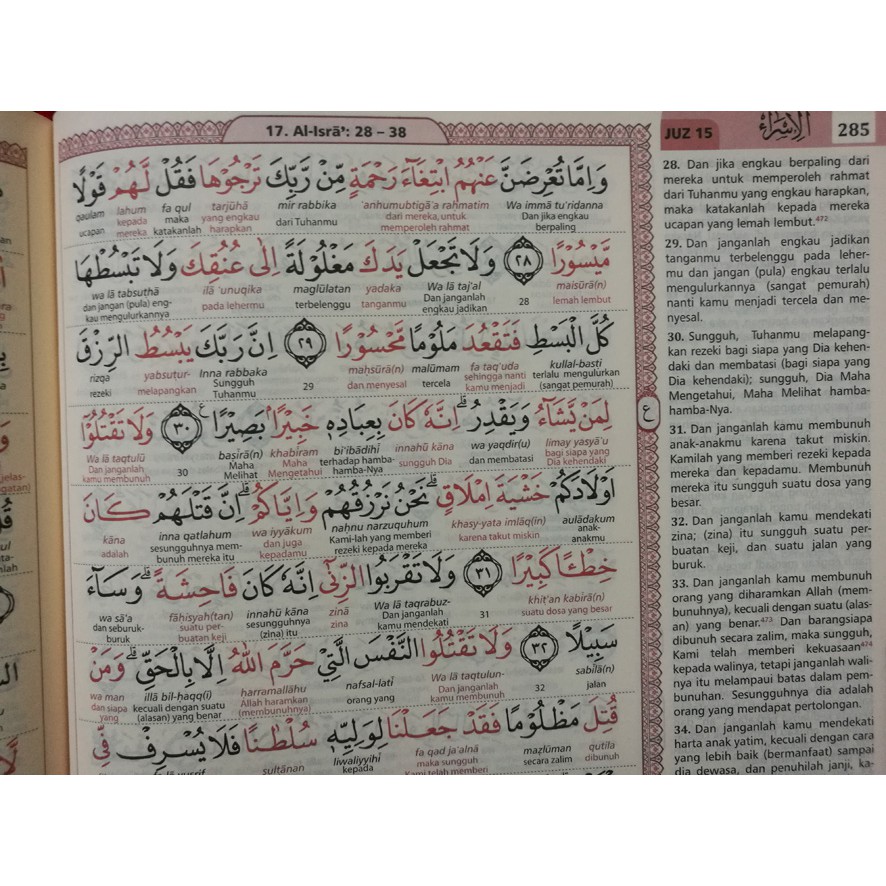 17. Al-Isrā’: 28 – 38
JUZ 15
الإسراء
285
وَاِمَّا تُعْرِضَنَّ عَنْهُمُ ابْتِغَاۤءَ رَحْمَةٍ مِّنْ رَّبِّكَ تَرْجُوْهَا فَقُلْ لَّهُمْ قَوْلًا
Wa immā tu‘riḍanna ‘anhumubtigā'a raḥmatim mir rabbika tarjūhā fa qul lahum qaulam
Dan jika engkau berpaling dari mereka, untuk memperoleh rahmat dari Tuhanmu yang engkau harapkan maka katakanlah kepada mereka ucapan
مَّيْسُوْرًا ۝٢٨ وَلَا تَجْعَلْ يَدَكَ مَغْلُوْلَةً اِلٰى عُنُقِكَ وَلَا تَبْسُطْهَا
maisūrā(n) Wa lā taj‘al yadaka maglūlatan ilā ‘unuqika wa lā tabsuṭhā
lemah lembut 28 Dan janganlah engkau jadikan tanganmu terbelenggu pada lehermu dan jangan (pula) eng-kau mengulurkannya
كُلَّ الْبَسْطِ فَتَقْعُدَ مَلُوْمًا مَّحْسُوْرًا ۝٢٩ اِنَّ رَبَّكَ يَبْسُطُ الرِّزْقَ
kullal-basṭi fa taq‘uda malūmam maḥsūrā(n) Inna rabbaka yabsuṭur- rizqa
terlalu mengulurkan (sangat pemurah) sehingga nanti kamu menjadi tercela dan menyesal 29 Sungguh Tuhanmu melapangkan rezeki
لِمَنْ يَّشَاۤءُ وَيَقْدِرُ ۗ اِنَّهٗ كَانَ بِعِبَادِهٖ خَبِيْرًاۢ بَصِيْرًا ۝٣٠ ع وَلَا تَقْتُلُوْٓا
limay yasyā'u wa yaqdir(u) innahū kāna bi‘ibādihī khabīram baṣīrā(n) Wa lā taqtulū
bagi siapa yang Dia kehendaki dan membatasi sungguh Dia terhadap hamba-hamba-Nya Maha Mengetahui Maha Melihat 30 Dan janganlah kamu membunuh
اَوْلَادَكُمْ خَشْيَةَ اِمْلَاقٍ ۗ نَحْنُ نَرْزُقُهُمْ وَاِيَّاكُمْ ۗ اِنَّ قَتْلَهُمْ كَانَ
aulādakum khasy-yata imlāq(in) naḥnu narzuquhum wa iyyākum inna qatlahum kāna
anak-anakmu karena takut miskin Kami-lah yang memberi rezeki kepada mereka dan juga kepadamu sesungguhnya mem-bunuh mereka itu adalah
خِطْـًٔا كَبِيْرًا ۝٣١ وَلَا تَقْرَبُوا الزِّنٰىٓ اِنَّهٗ كَانَ فَاحِشَةً ۗ وَسَاۤءَ
khiṭ'an kabīrā(n) Wa lā taqrabuz- zinā innahū kāna fāḥisyah(tan) wa sā'a
suatu dosa yang besar 31 Dan janganlah kamu mendekati zina sesungguhnya (zina) itu suatu per-buatan keji dan seburuk-buruk
سَبِيْلًا ۝٣٢ وَلَا تَقْتُلُوا النَّفْسَ الَّتِيْ حَرَّمَ اللّٰهُ اِلَّا بِالْحَقِّ ۗ وَمَنْ
sabīlā(n) Wa lā taqtulun- nafsal-latī ḥarramallāhu illā bil-ḥaqq(i) wa man
jalan 32 Dan janganlah kamu membunuh orang yang Allah haramkan (membunuhnya) kecuali dengan suatu (alasan) yang benar dan siapa yang
قُتِلَ مَظْلُوْمًا فَقَدْ جَعَلْنَا لِوَلِيِّهٖ سُلْطٰنًا فَلَا يُسْرِفْ فِّى
qutila maẓlūman fa qad ja‘alnā liwaliyyihī sulṭānan
dibunuh secara zalim maka sungguh Kami telah memberi kepada
ع
28. Dan jika engkau berpaling dari
mereka untuk memperoleh rahmat
dari Tuhanmu yang engkau harapkan,
maka katakanlah kepada mereka
ucapan yang lemah lembut.472
29. Dan janganlah engkau jadikan
tanganmu terbelenggu pada leher-
mu dan jangan (pula) engkau terlalu
mengulurkannya (sangat pemurah)
nanti kamu menjadi tercela dan me-
nyesal.
30. Sungguh, Tuhanmu melapang-
kan rezeki bagi siapa yang Dia kehen-
daki dan membatasi (bagi siapa yang
Dia kehendaki); sungguh, Dia Maha
Mengetahui, Maha Melihat hamba-
hamba-Nya.
31. Dan janganlah kamu membunuh
anak-anakmu karena takut miskin.
Kamilah yang memberi rezeki kepada
mereka dan kepadamu. Membunuh
mereka itu sungguh suatu dosa yang
besar.
32. Dan janganlah kamu mendekati
zina; (zina) itu sungguh suatu per-
buatan keji, dan suatu jalan yang
buruk.
33. Dan janganlah kamu membunuh
orang yang diharamkan Allah (mem-
bunuhnya), kecuali dengan suatu (alas-
an) yang benar.473 Dan barangsiapa
dibunuh secara zalim, maka sungguh,
Kami telah memberi kekuasaan474
kepada walinya, tetapi janganlah wali-
nya itu melampaui batas dalam pem-
bunuhan. Sesungguhnya dia adalah
orang yang mendapat pertolongan.
34. Dan janganlah kamu mendekati
harta anak yatim, kecuali dengan cara
yang lebih baik (bermanfaat) sampai
dia dewasa, dan penuhilah janji, ka-